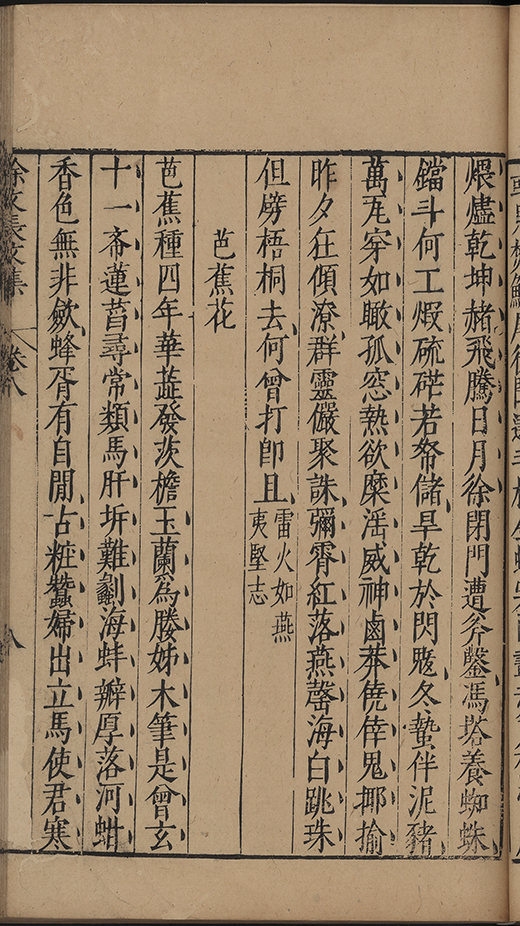 煨燼乾坤赭飛騰日月徐閉門遭斧鑿馮塔養蜘蛛
鐺斗何工煆硫硭若帑儲旱乾於閃虺冬蟄伴泥豬
萬瓦穿如瞰孤窓熱欲糜滛威神鹵莽僥倖鬼揶揄
昨夕在傾潦群靈儼聚誅彌霄紅落燕罄海白跳珠
但劈梧桐去何曾打卽且雷火如燕
夷堅志
芭蕉花
芭蕉種四年華蕋發茨檐玉蘭爲媵姊木筆是曾玄
十一斋蓮萏尋常類馬肝坼難劙海蚌瓣厚落河蚶
香色無非歛蜂胥有自閒古粧蠶婦出立馬使君寒
徐文長文集 卷八 八